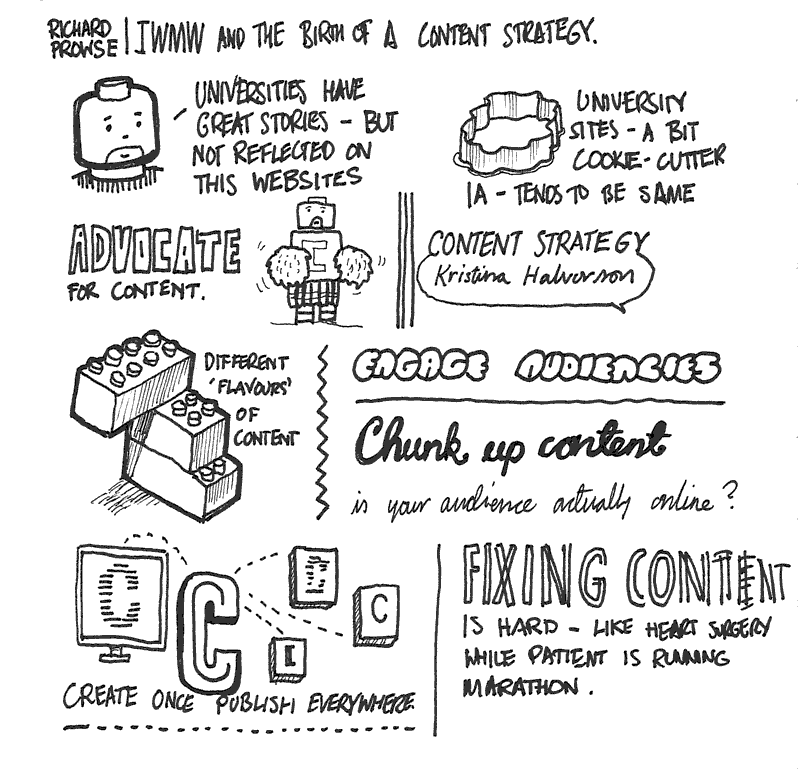 RICHARD
PROWSE
IWMW AND THE BIRTH OF A CONTENT STRATEGY.
UNIVERSITIES HAVE
GREAT STORIES - BUT
NOT REFLECTED ON
THIS WEBSITES
UNIVERSITY
SITES - A BIT
COOKIE-CUTTER
IA - TENDS TO BE SAME
ADVOCATE
FOR CONTENT.
C
CONTENT STRATEGY
Kristina Halvorson
DIFFERENT
'FLAVOURS'
OF
CONTENT
ENGAGE AUDIENCIES
Chunk up content
is your audience actually online?
C
C
C
C
C
CREATE ONCE PUBLISH EVERYWHERE
FIXING CONTENT
IS HARD - LIKE HEART SURGERY
WHILE PATIENT IS RUNNING
MARATHON.